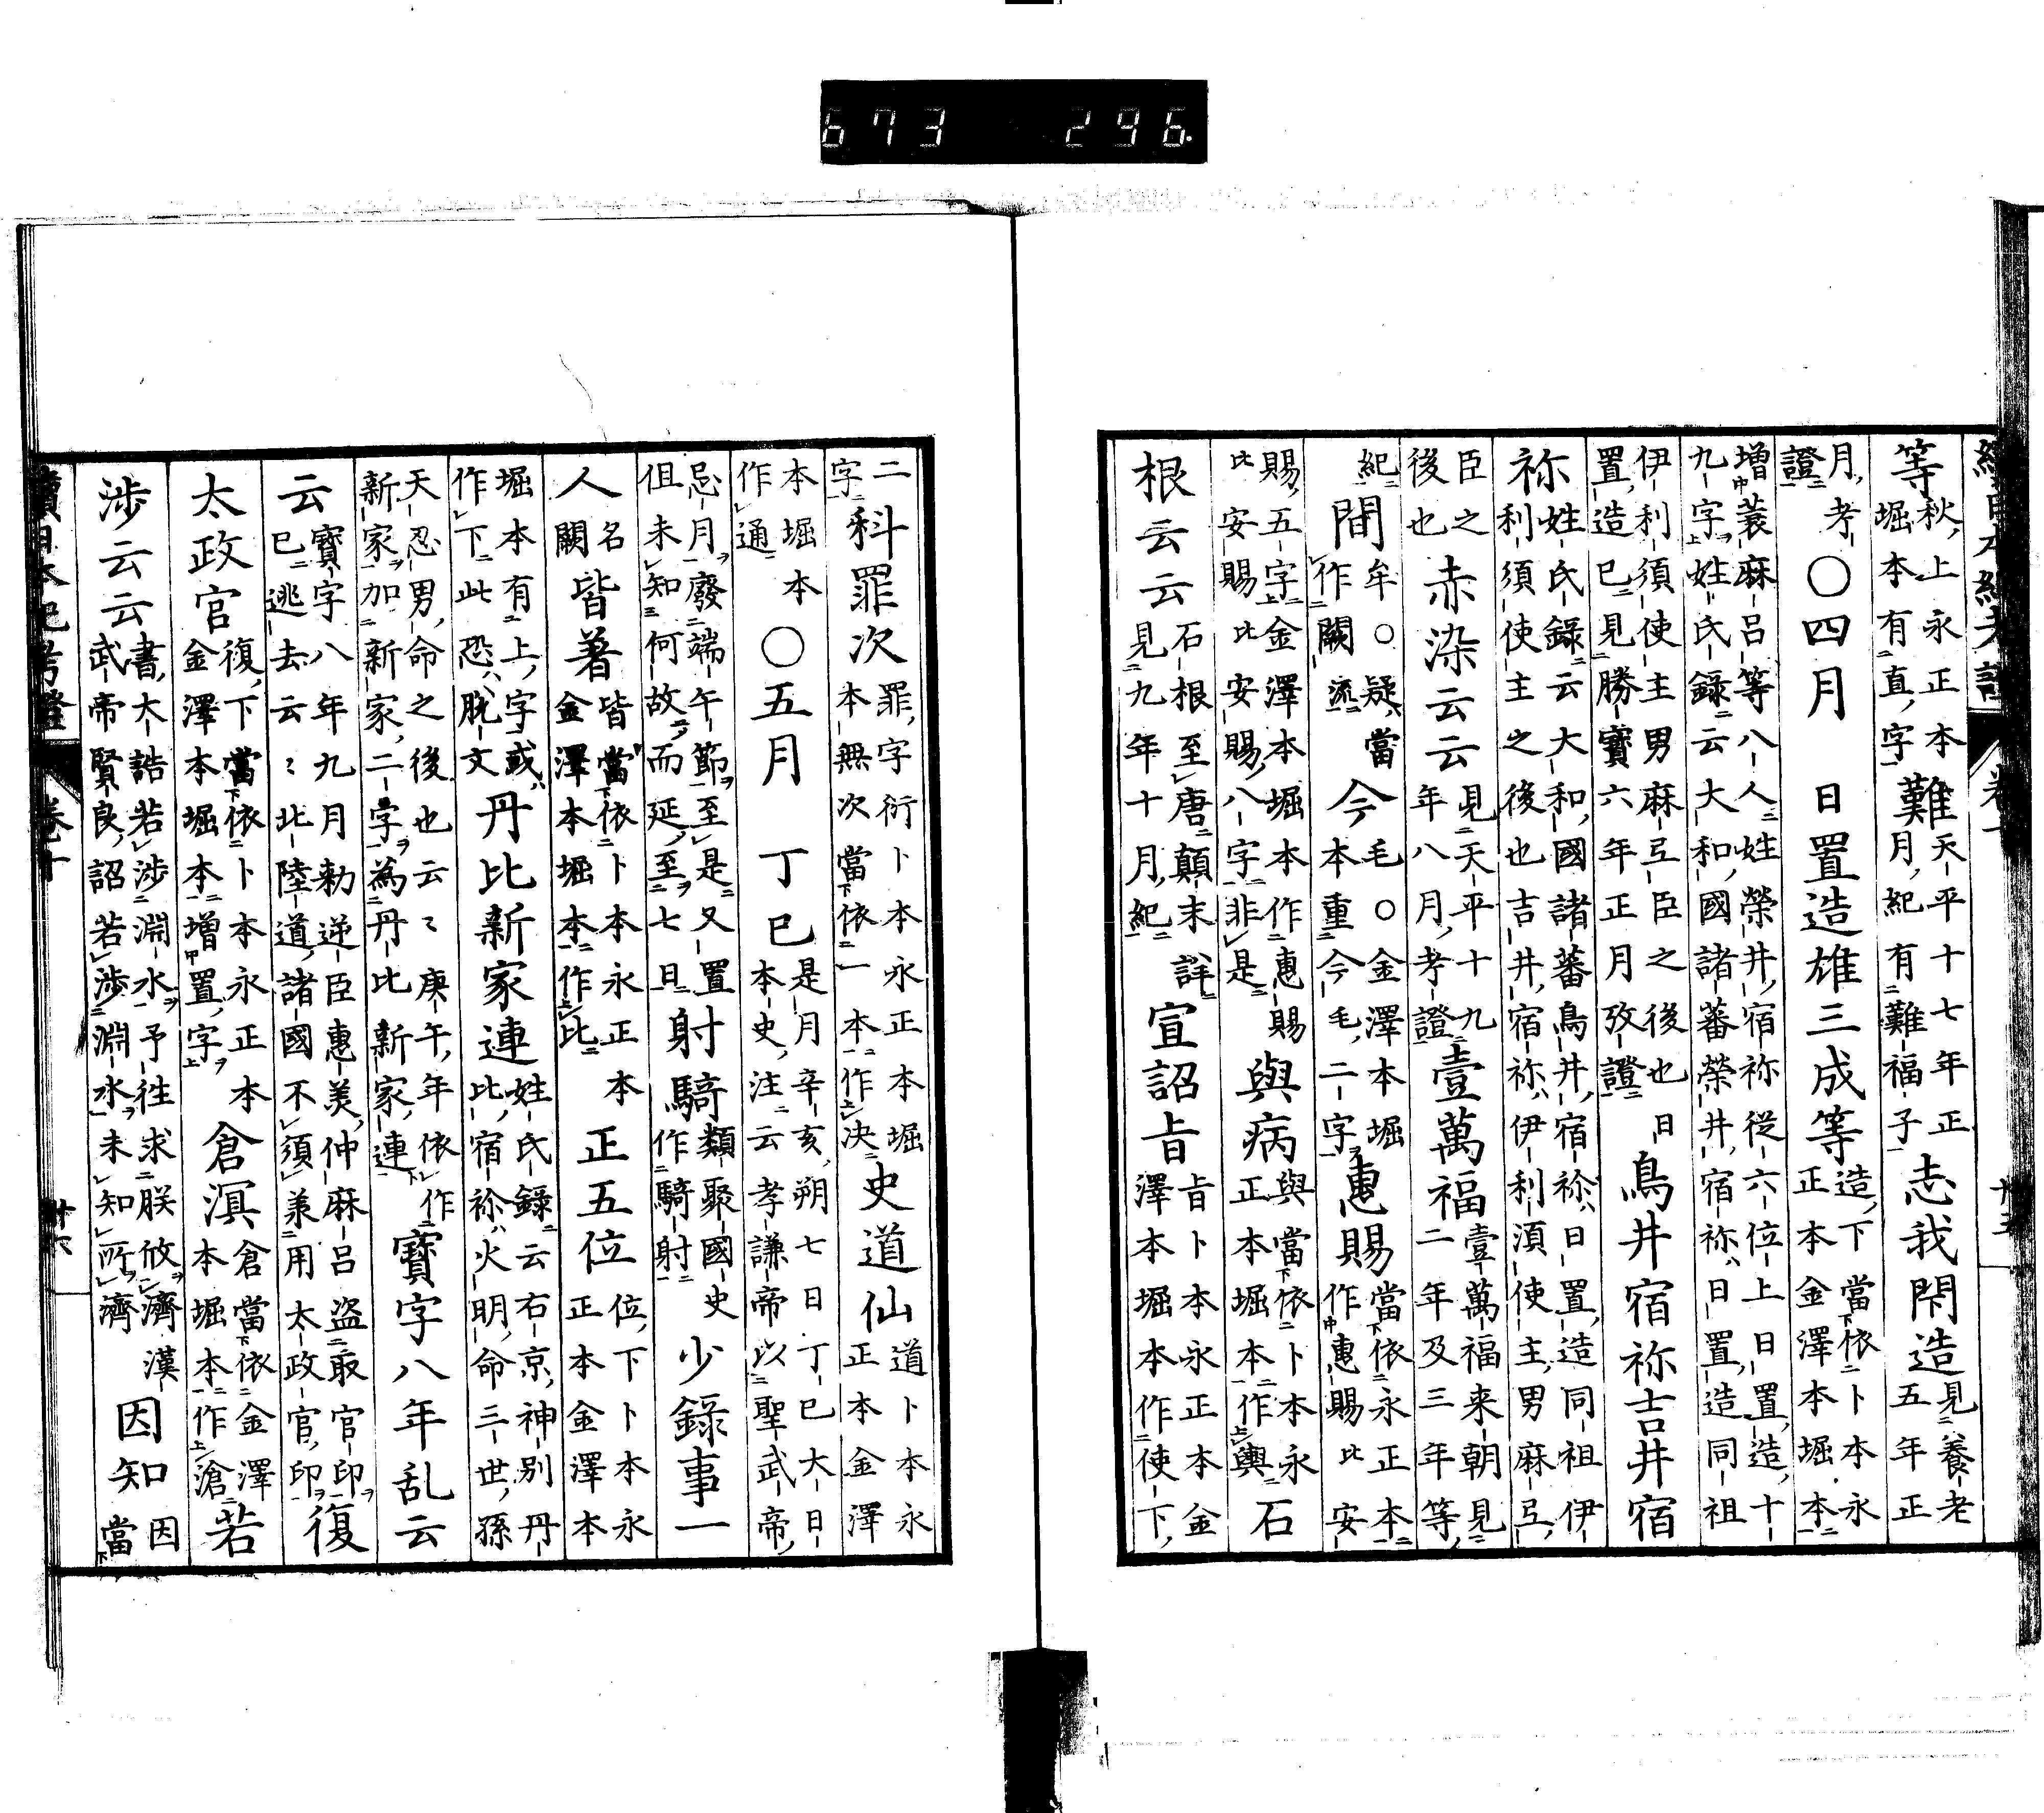 673 296
等秋上永正本堀本有直字難天平十七年正月紀有難福子志我閇造見養老五年正
月考證〇四月 日置造雄三成等造下當依卜本永正本金澤本堀本
增蓑麻呂等八人姓榮井宿祢從六位上日置造十九字姓氏錄云大和國諸蕃榮井宿祢日置造同祖
伊利須使主男麻弖臣之後也置造已見勝寶六年正月攷證 日鳥井宿祢吉井宿
祢姓氏錄云大和國諸蕃鳥井宿祢日置造同祖伊利須使主之後也吉井宿祢伊利須使主男麻弖
臣之後也赤染云云見天平十九年八月考證壹萬福壹萬福来朝見二年及三年等
紀間牟〇疑當作闕流今毛〇金澤本堀本重今毛二字惠賜當依永正本作惠賜比安
賜五字金澤本堀本作惠賜比安賜比安賜八字非是與病與當依卜本永正本堀本作輿石
根云云石根至唐顛末詳見九年十月紀宣詔㫖㫖卜本永正本金澤本堀本作使下
二字科罪次罪字衍卜本永正本堀本無次當依一本作决史道仙道卜本永正本金澤
本堀本作通〇五月 丁巳是月辛亥朔七日丁巳大日本史注云孝謙帝以聖武帝
忌月廢端午節至是又置但未知何故而延至七日射騎類聚國史作騎射少錄事一
人名闕皆著皆當依卜本永正本金澤本堀本作比正五位位下卜本永正本金澤本
堀本有上字或作下此恐脫文丹比新家連姓氏錄云右京神別丹比宿祢火明命三世孫
天忍男命之後也云〻庚午年依作新家加新家二字為丹比新家連寶字八年乱云
云寶字八年九月勅逆臣惠美仲麻呂盜取官印已逃去云〻北陸道諸國不須兼用太政官印復
太政官復下當依卜本永正本金澤本堀本增置字倉溟倉當依金澤本堀本作滄若
涉云云書大誥若涉淵水予往求朕攸濟漢武帝賢良詔若涉淵水未知所濟因知因當